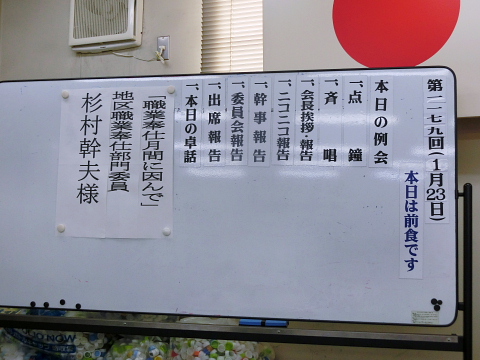 第二一七九回(1月23日)
本日は前食です
本日の例会
一、点鐘
一、斉唱
一、会長挨拶・報告
一、ニコニコ報告
一、幹事報告
一、委員会報告
一、出席報告
一、本日の卓話
「職業奉仕月間に因んで」
地区職業奉仕部門委員
杉村幹夫様